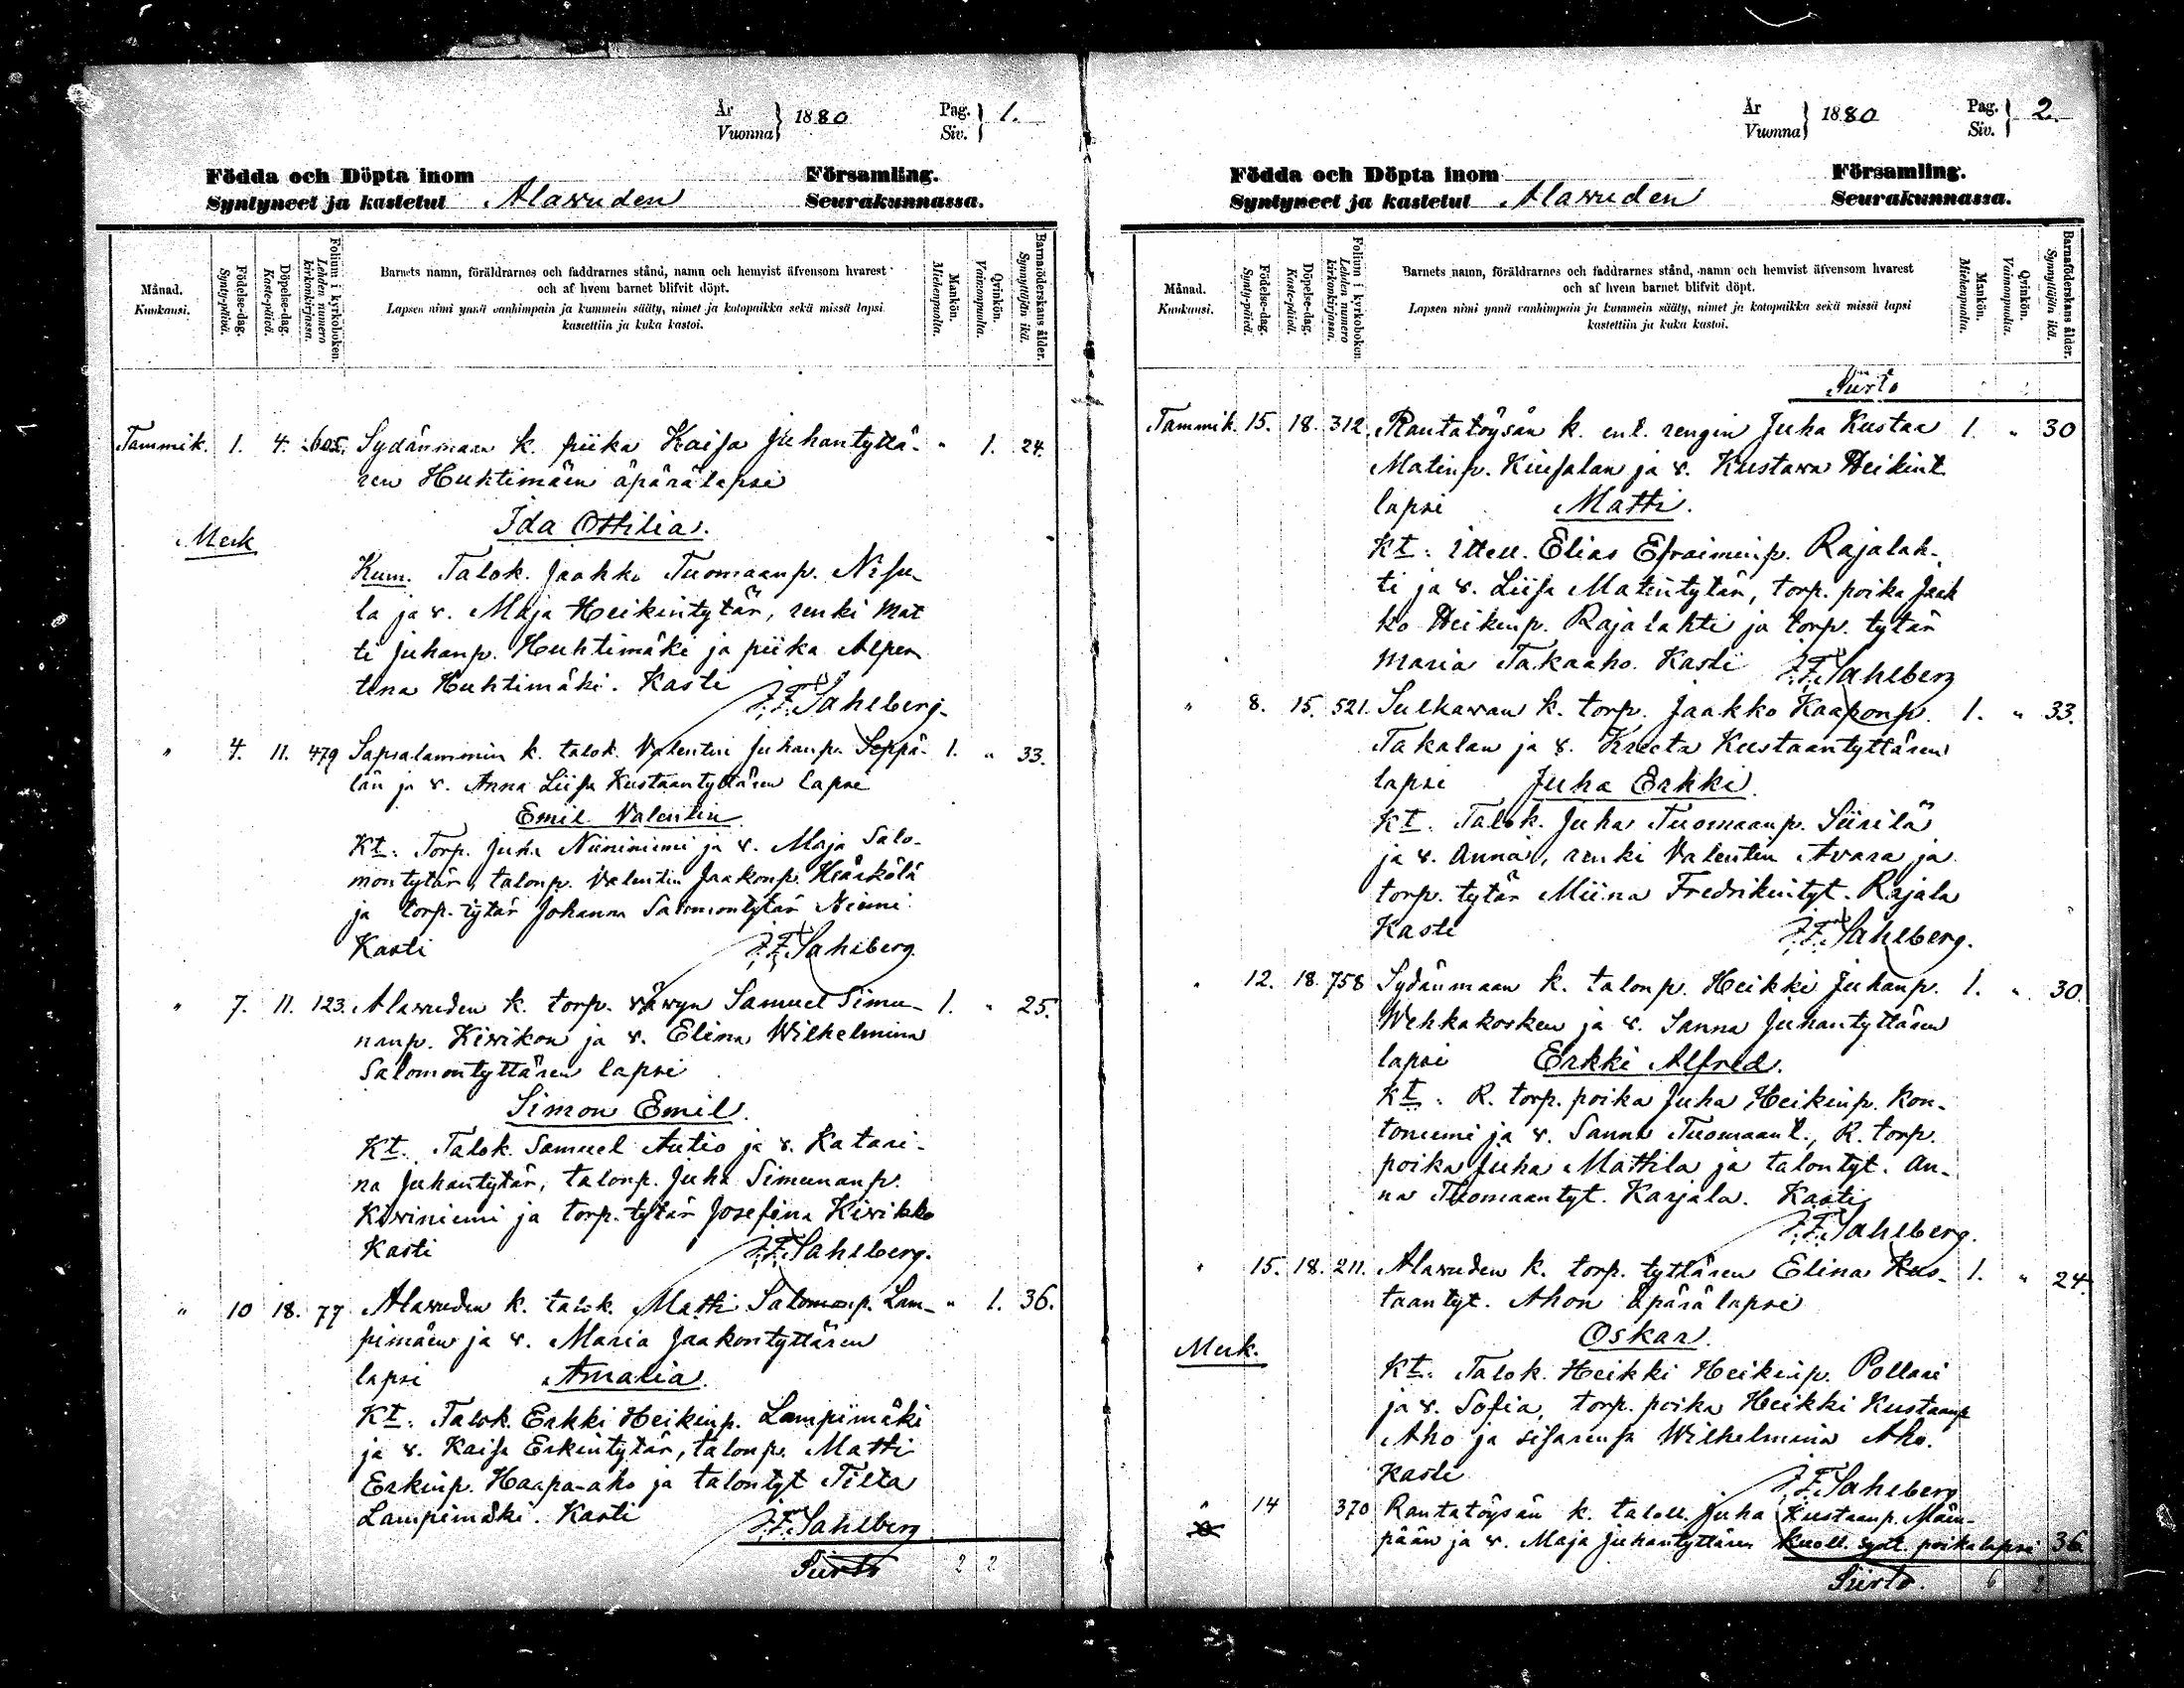 År
Vuonna } 1880 Pag.
Siv. } 1.
Födda och Döpta inom Församling.
Syntyneet ja kastetut Alawuden Seurakunnassa.
Månad.
Kuukausi.
Födelse-dag.
Synty-päivä.
Döpelse-dag.
Kaste-päivä.
Folium i kyrkoboken.
Lehden numero
kirkonkirjassa.
Barnets namn, föräldrarnes och faddrarnes stånd, namn och hemvist äfvensom hvarest
och af hvem barnet blifvit döpt.
Lapsen nimi ynnä vanhimpain ja kummein sääty, nimet ja kotopaikka sekä missä lapsi
kastettiin ja kuka kastoi.
Mankön.
Miehenpuolta.
Qvinkön.
Vaimonpuolta.
Barnaföderskans ålder.
Synnyttäjän ikä.
Tammik. 1. 4. 605. Sydänmaan k. piika Kaisa Juhantyttä- " 1. 24.
ren Huhtimäen äpärälapsi
Ida Ottilia.
Merk
Kum. Talok. Jaakko Tuomaanp. Nisu-
la ja v. Maja Heikintytär, renki Mat
ti Juhanp. Huhtimäki ja piika Alper
tina Huhtimäki. Kasti
J.F. Sahlberg.
" 4. 11. 479 Sapsalammin k. talok. Valentin Juhanp. Seppä- 1. " 33.
län ja v. Anna Liisa Kustaantyttären lapsi
Emil Valentin.
Kt. Torp. Juha Niininiemi ja v. Maja Salo-
montytär, talonp. Valentin Jaakonp. Hääkölä
ja torp. tytär Johanna Salomontytär Niini
Kasti J.F. Sahlberg.
" 7. 11. 123. Alawuden k. torp. vävyn Samuel Simu- 1. " 25.
nanp. Kiwikon ja v. Elina Wilhelmina
Salomontyttären lapsi
Simon Emil.
Kt. Talok. Samuel Autio ja v. Katari-
na Juhantytär, talonp. Juha Simunanp.
Kiviniemi ja torp. tytär Josefina Kivikko
Kasti J.F. Sahlberg.
" 10 18. 77 Alawuden k. talok. Matti Salomonp. Lam- " 1. 36.
pimäen ja v. Maria Jaakontyttären
lapsi Amalia.
Kt. Talok. Erkki Heikinp. Lampimäki
ja v. Kaisa Erkintytär, talonp. Matti
Erkinp. Haapa-aho ja talontyt Tilta
Lampimäki. Kasti J.F. Sahlberg
Siirto 2 2
År
Vuonna } 1880 Pag.
Siv. } 2.
Födda och Döpta inom Församling.
Syntyneet ja kastetut Alawuden Seurakunnassa.
Månad.
Kuukausi.
Födelse-dag.
Synty-päivä.
Döpelse-dag.
Kaste-päivä.
Folium i kyrkoboken.
Lehden numero
kirkonkirjassa.
Barnets namn, föräldrarnes och faddrarnes stånd, namn och hemvist äfvensom hvarest
och af hvem barnet blifvit döpt.
Lapsen nimi ynnä vanhimpain ja kummein sääty, nimet ja kotopaikka sekä missä lapsi
kastettiin ja kuka kastoi.
Mankön.
Miehenpuolta.
Qvinkön.
Vaimonpuolta.
Barnaföderskans ålder.
Synnyttäjän ikä.
Siirto
Tammik. 15. 18. 312. Rantatöysän k. ent. rengin Juha Kustaa 1. " 30
Matinp. Kiusalan ja v. Kustava Heikint
lapsi Matti.
Kt. Ittell. Elias Efraiminp. Rajalah-
ti ja v. Liisa Matintytär, torp. poika Jaak
ko Heikinp. Rajalahti ja torp. tytär
Maria Takaaho. Kasti J.F. Sahlberg
" 8. 15. 521. Sulkavan k. torp. Jaakko Kaaponp. 1. " 33.
Takalan ja v. Kreeta Kustaantyttären
lapsi Juha Erkki.
Kt. Talok. Juha Tuomaanp. Siirilä
ja v. Anna, renki Valentin Avara ja
torp. tytär Miina Fredrikintyt. Rajala
Kasti J.F. Sahlberg.
" 12. 18. 758 Sydänmaan k. talonp. Heikki Juhanp. 1. " 30.
Wehkakosken ja v. Sanna Juhantyttären
lapsi Erkki Alfred.
Kt. R. torp. poika Juha Heikinp. Kon-
toniemi ja v. Sanna Tuomaant., R. torp.
poika Juha Mattila ja talontyt. An-
na Tuomaantyt. Karjala. Kasti
J.F. Sahlberg.
" 15. 18. 211. Alawuden k. torp. tyttären Elina Kus- 1. " 24.
taantyt. Ahon äpärälapsi
Oskar.
Merk.
Kt. Talok. Heikki Heikinp. Pollari
ja v. Sofia, torp. poika Heikki Kustaanp
Aho ja sisarensa Wilhelmina Aho.
Kasti J.F. Sahlberg
" 14 370 Rantatöysän k. taloll. Juha Kustaanp. Mäen-
pään ja v. Maja Juhantyttären kuoll. synt. poikalapsi 36
Siirto. 6 2